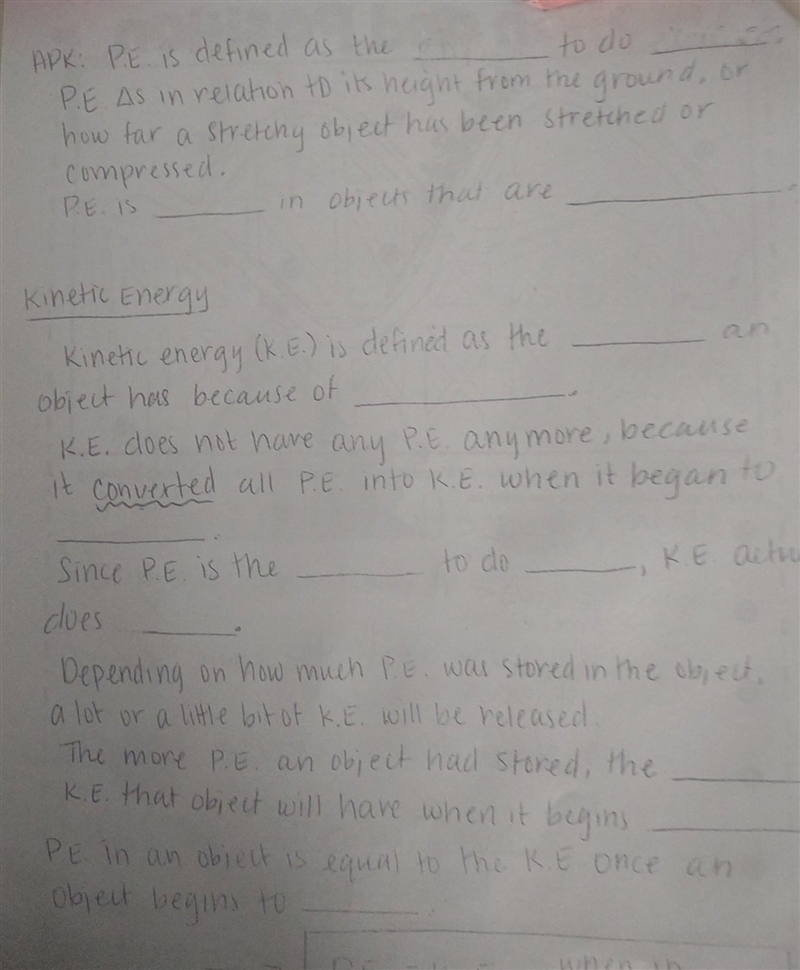 APK: P.E. is defined as the ________ to do ________.
P.E Δs in relation to its height from the ground, or
how far a stretchy object has been stretched or
compressed.
P.E. is ________ in objects that are ________.
Kinetic Energy
Kinetic energy (K.E.) is defined as the ________ an
object has because of ________.
K.E. does not have any P.E. anymore, because
it converted all P.E. into K.E. when it began to
________.
Since P.E. is the ________ to do ________, K.E. actu
does ________.
Depending on how much P.E. was stored in the object,
a lot or a little bit of K.E. will be released.
The more P.E. an object had stored, the ________
K.E. that object will have when it begins ________
P.E. in an object is equal to the K.E once an
object begins to ________.
when in